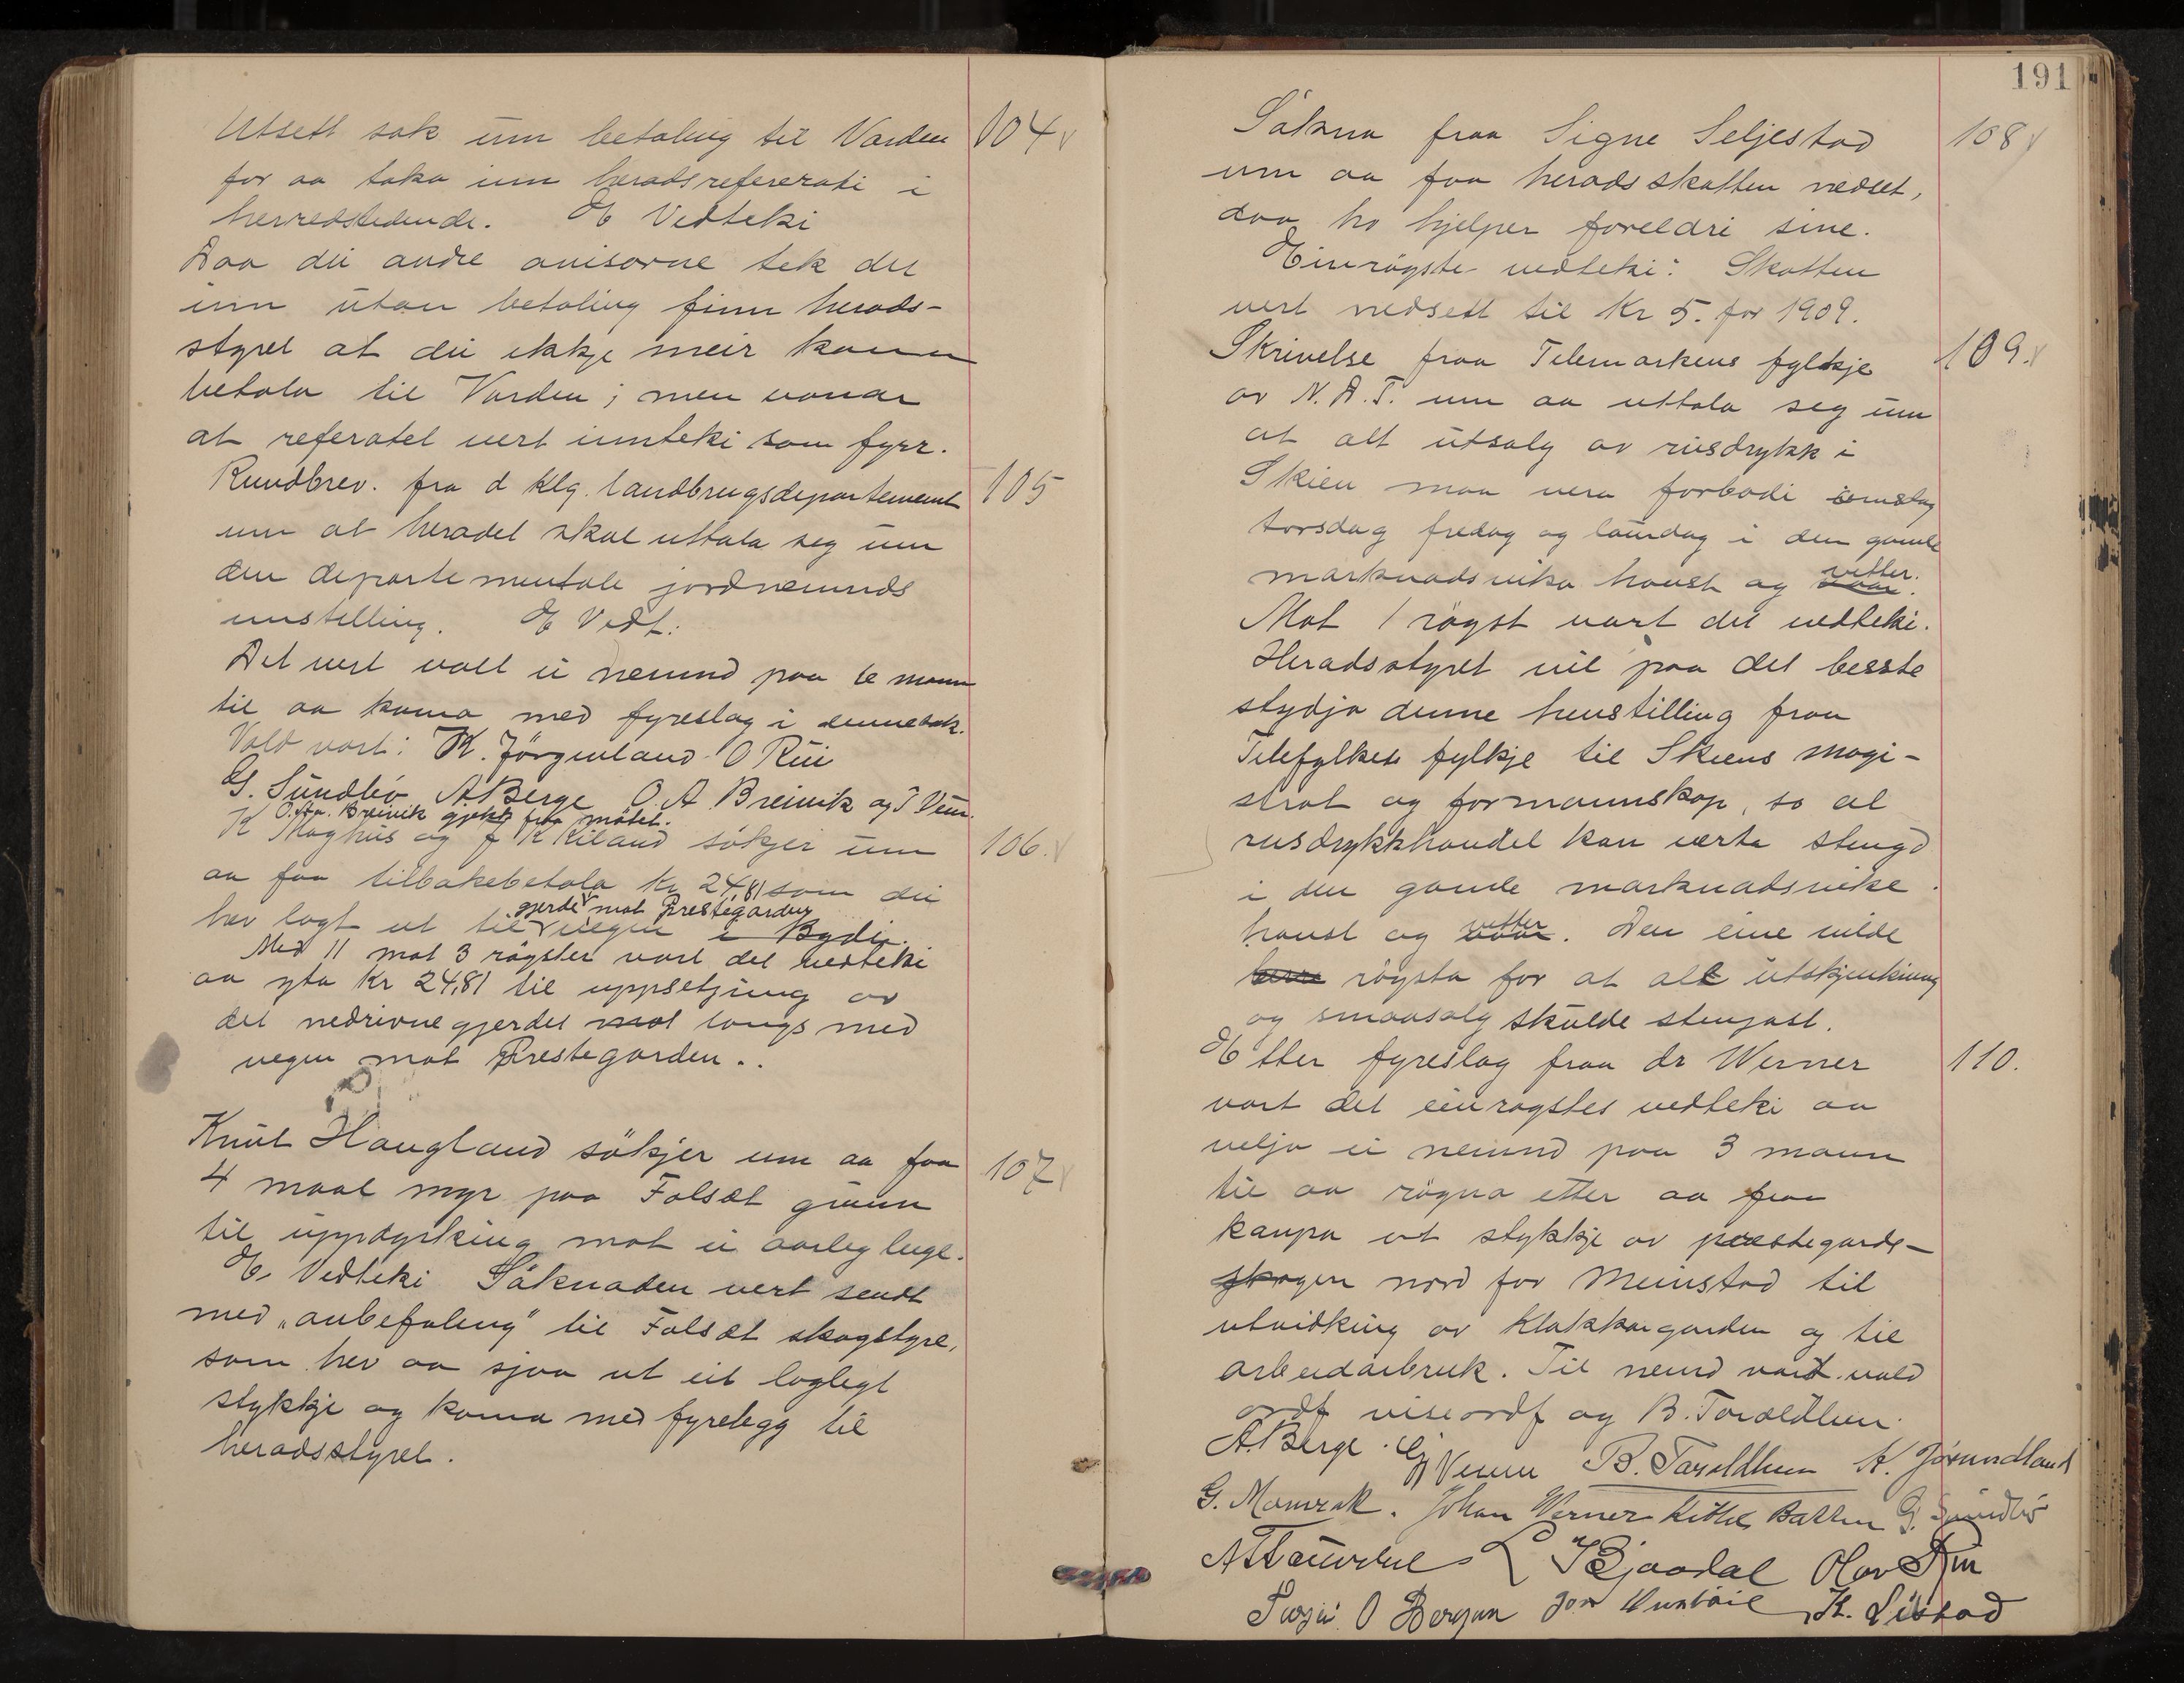 Utsett sak um betaling til Varden 104
for aa taka inn heradsreferati i
herredstidende. E Vedteki
Daa dei andre avisorne tek det
inn utan betaling finn herads-
styret at dei ikkje meir kann
betala til Varden; men vonar
at referatet vert innteki som fyrr.
Rundbrev. fra d klg. landbrugsdepartement 105
um at heradet skal uttala seg um
den departementale jordnemnds
innstilling. E Vedt:
Det vert valt ei nemnd paa 6 mann
til aa koma med fyreslag i denne sak.
Vald vart: K. Jörgenland O Rui
G. Sundbö ABerge O. A Breivik og T Veum.
O. Aa. Breivik gjekk fraa mötet.
K Haghus og J K Kiland sökjer um 106.
aa faa tilbakebetala kr 24,81 som dei
gjerde mot Prestegarden
hev lagt ut til vegen i Bydi.
Med 11 mot 3 röyster vart det vedteki
aa yta kr 24,81 til uppsetjing av
det nedrivne gjerdet mot langs med
vegen mot Prestegarden..
Knut Haugland sökjer um aa faa 107
4 maal myr paa Folsæt grunn
til uppdyrking mot ei aarleg leige.
E. Vedteki Söknaden vert sendt
med „anbefaling" til Folsæt skogstyre,
som hev aa sjaa ut eit laglegt
stykkje og koma med fyrelegg til
heradsstyret.
191
Sökna fraa Signe Seljestad 108
um aa faa heradsskatten nedset,
daa ho hjelper foreldri sine.
Einröystes vedteki: Skatten
vert nedsett til Kr 5. for 1909.
Skrivelse fraa Telemarkens fylkje 109.
av N. A. T. um aa uttala seg um
at alt utsalg av rusdrykk i
Skien maa vera forbodi
torsdag fredag og laurdag i den gamle
marknadsvika haust og vetter.
Mot 1 röyst vart det vedteki.
Heradsstyret vil paa det besste
stydja denne henstilling fraa
Telefylkets fylkje til Skiens magi-
strat og formannskap, so at
rusdrykkhandel kan verta stengd
i den gamle marknadsvike
haust og vetter. Den eine vilde
bera röysta for at all utskjenkning
og smaasalg skulde stengast.
Etter fyreslag fraa dr Werner 110.
vart det einröystes vedteki aa
velja ei nemnd paa 3 mann
til aa röyna etter aa faa
kaupa eit stykkje av prestegards-
skogen nord for Meinstad til
utvidking av Klokkargarden og til
arbeidarbruk. Til nemd vart vald
ordf viseordf og B. Taraldlien.
A. Berge. Veum B. Taraldlien K. Jörundland
G. Momrak. Johan Werner Kittil Bakken G. Sundbö
L K Bjaadal Olav Rui
O Bergan Jon